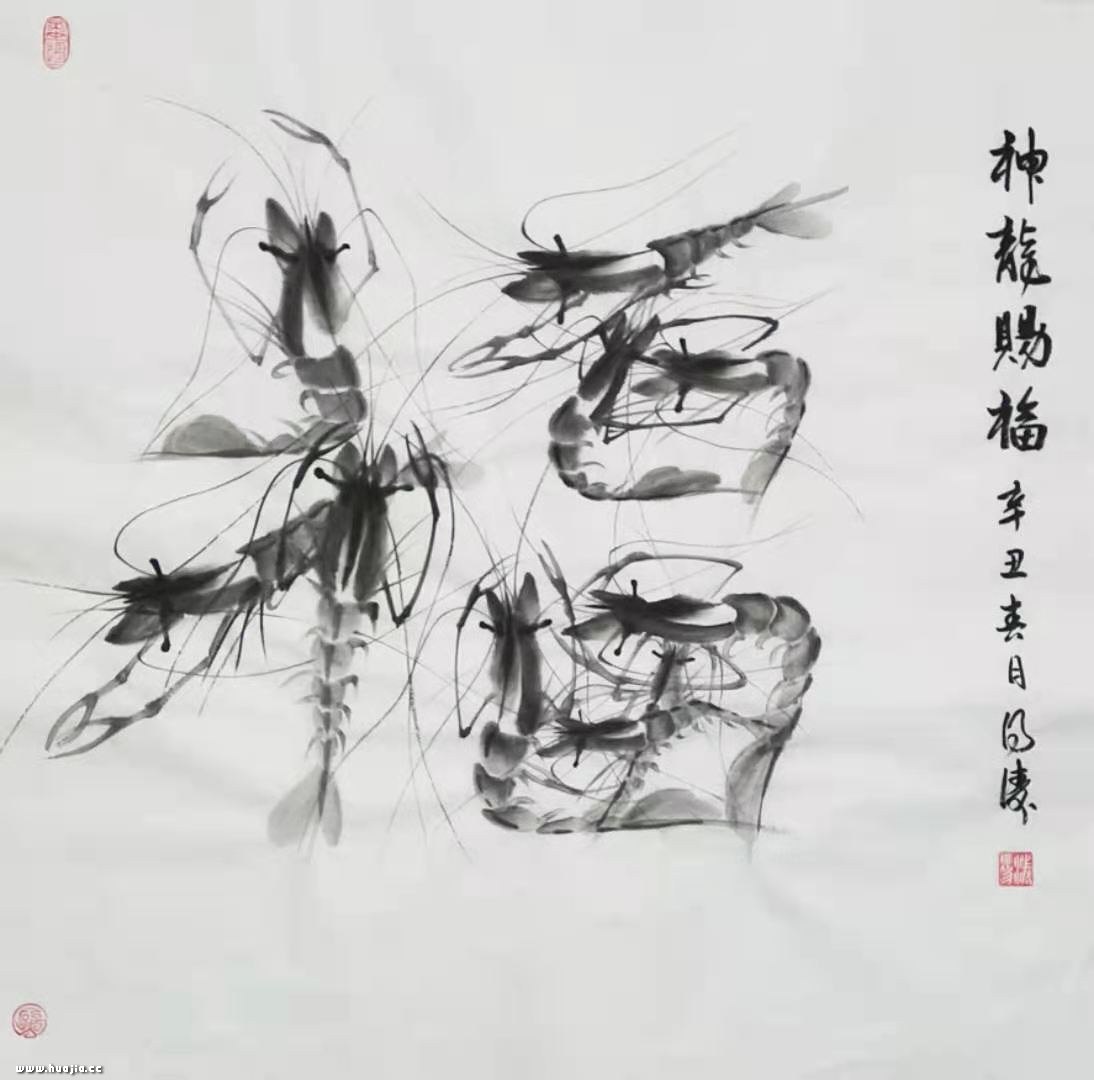 福
神龍賜福 辛丑春月
www.huajia.cc